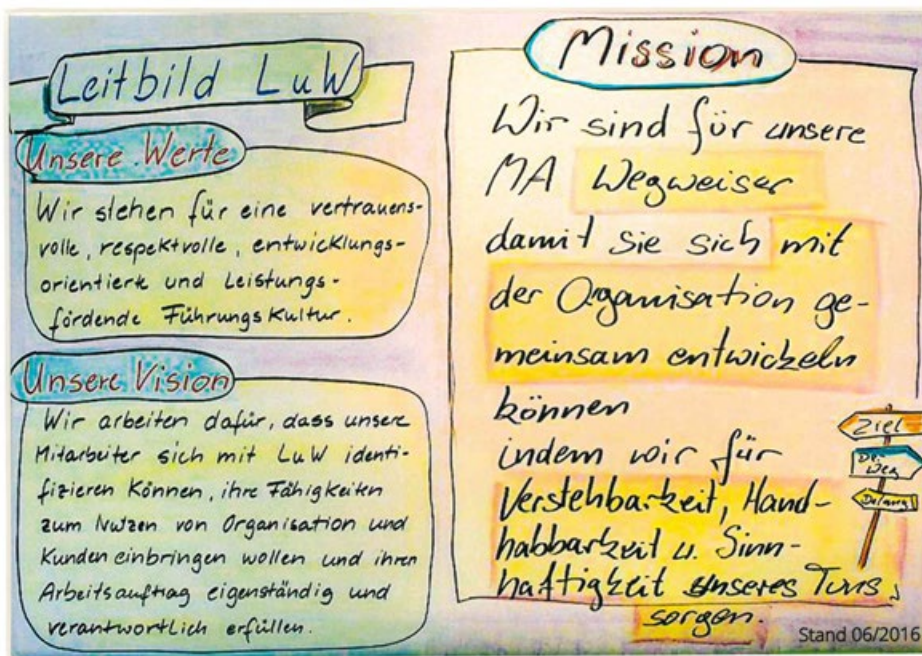 Leitbild LuW
Unsere Werte
Wir stehen für eine vertrauens-
volle, respektvolle, entwicklungs-
orientierte und Leistungs-
fördende Führungskultur.
Unsere Vision
Wir arbeiten dafür, dass unsere
Mitarbeiter sich mit LuW identi-
fizieren können, ihre Fähigkeiten
zum Nutzen von Organisation und
Kunden einbringen wollen und ihren
Arbeitsauftrag eigenständig und
verantwortlich erfüllen.
Mission
Wir sind für unsere
MA Wegweiser
damit sie sich mit
der Organisation ge-
meinsam entwickeln
können
indem wir für
Verstehbarkeit, Hand-
habbarkeit u. Sinn-
haftigkeit unseres Tuns
sorgen.
Ziel
Weg
Stand 06/2016